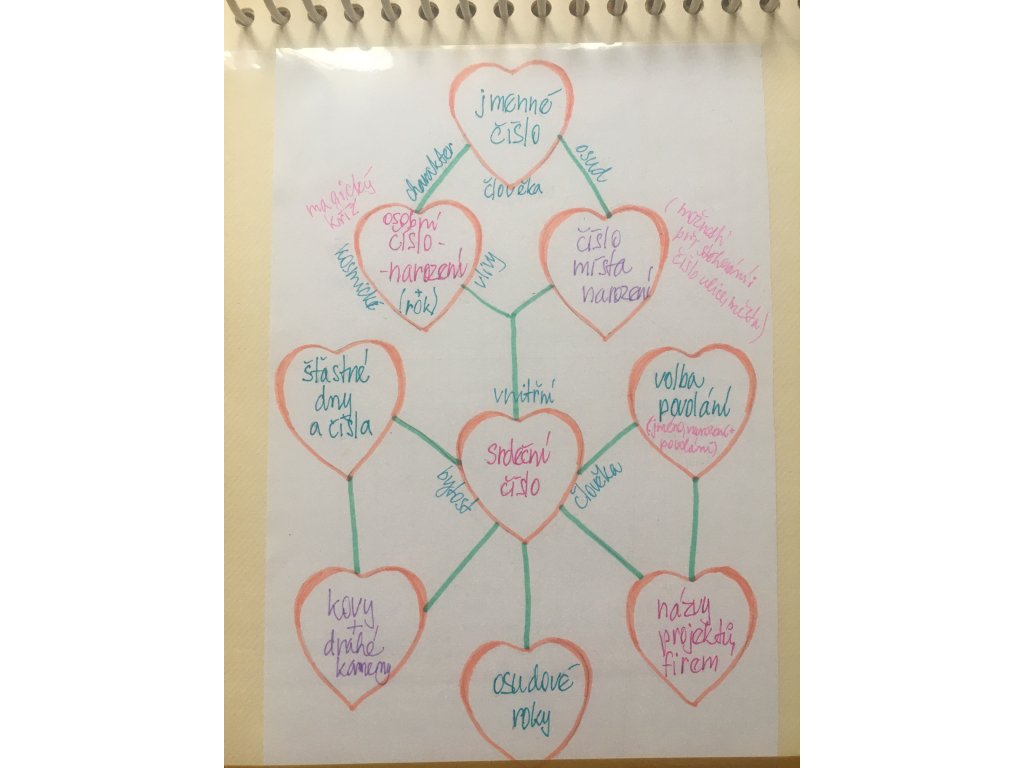 jmenné
číslo
charakter
osud
člověka
magický
kříž
osobní
číslo -
- narození
+
(rok)
kosmické
vlivy
číslo
místa
narození
(možnosti
při stěhování
číslo ulice, města)
šťastné
dny
a čísla
vnitřní
srdeční
číslo
bytost
člověka
volba
povolání
(jméno, narození +
povolání)
kovy
+
drahé
kameny
osudové
roky
názvy
projektů,
firem